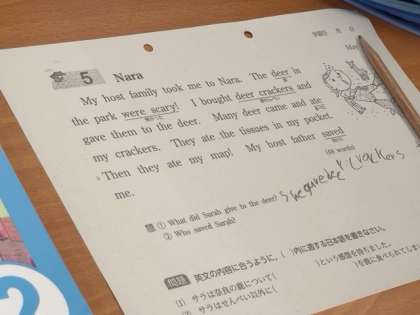 5 Nara
My host family took me to Nara. The deer in
the park were scary! I bought deer crackers and
gave them to the deer. Many deer came and ate
my crackers. They ate the tissues in my pocket.
Then they ate my map! My host father saved
me.
① What did Sarah give to the deer? She gave
② Who saved Sarah?
crackers
問題 英文の内容に合うように、( )内に適する日本語を書きなさい。
(1) サラは奈良の鹿について(
)という感想を持ちました。
(2) サラはせんべい以外に(